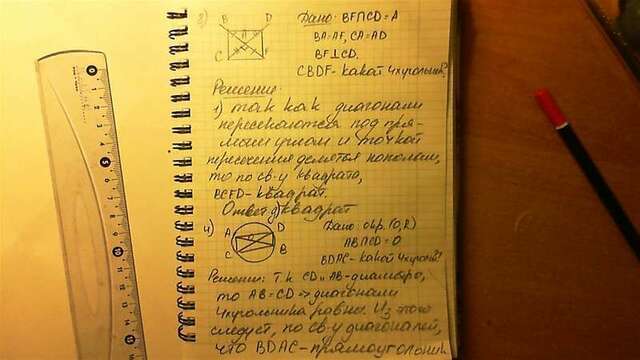 3) B D A C F Дано: BF∩CD = A
BA=AF, CA=AD
BF⊥CD.
CBDF - какой 4хугольник?
Решение:
1) так как диагонали
пересекаются под пря-
мым углом и точкой
пересечения делятся пополам,
то по св-у квадрата,
BCFD - квадрат.
Ответ: квадрат
4) A D C B Дано: окр. (O,R)
AB∩CD = O
BDAC - какой 4хугольн?
Решение: т.к CD и AB - диаметры,
то AB = CD => диагонали
4хугольника равны. Из этого
следует, по св-у диагоналей,
что BDAC - прямоугольник
0
5
10
15